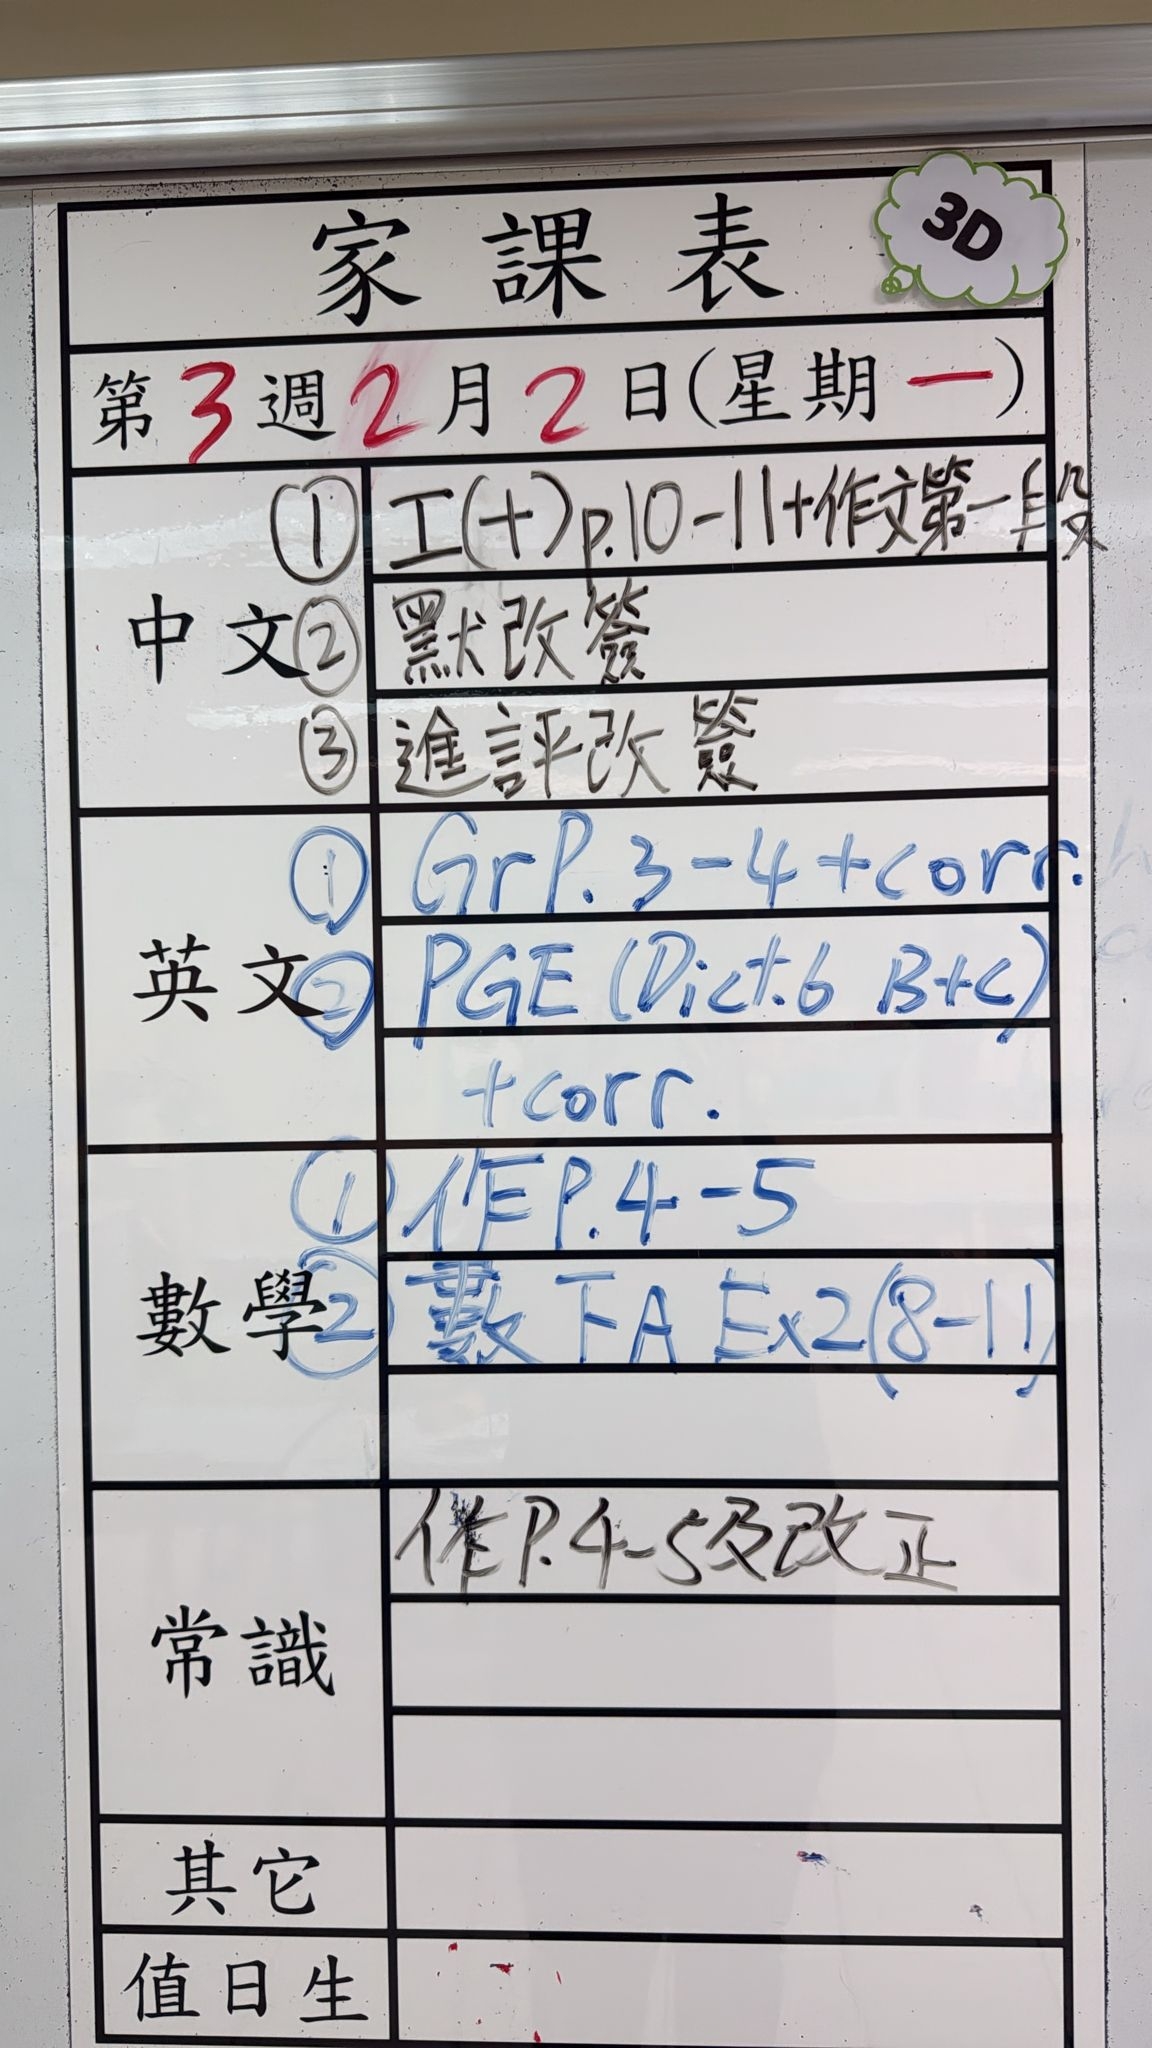 家課表
3D
第3週2月2日(星期一)
中文
① 工(十)p.10-11+作文第一段
② 默改簽
③ 進評改簽
英文
① Gr P.3-4+corr.
② PGE (Dict.6 B+C)
+corr.
數學
① 作P.4-5
② 數下A Ex2(8-11)
常識
作P.4-5及改正
其它
值日生